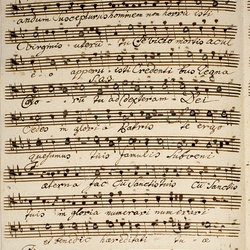 andum Suscepturus hominem non horruisti
Virginis uterum tu devicto mortis acul
e o aperuisti Credenti bus Regna
Coelo rum tu ad Dexteram Dei
Sedes in gloria Patris te ergo
quesumus tuis famulis subveni
aeterna fac Cu Sanctis tuis Cu Sanctis
tuis in gloria numerari numerari
et benedic haereditati tu ae